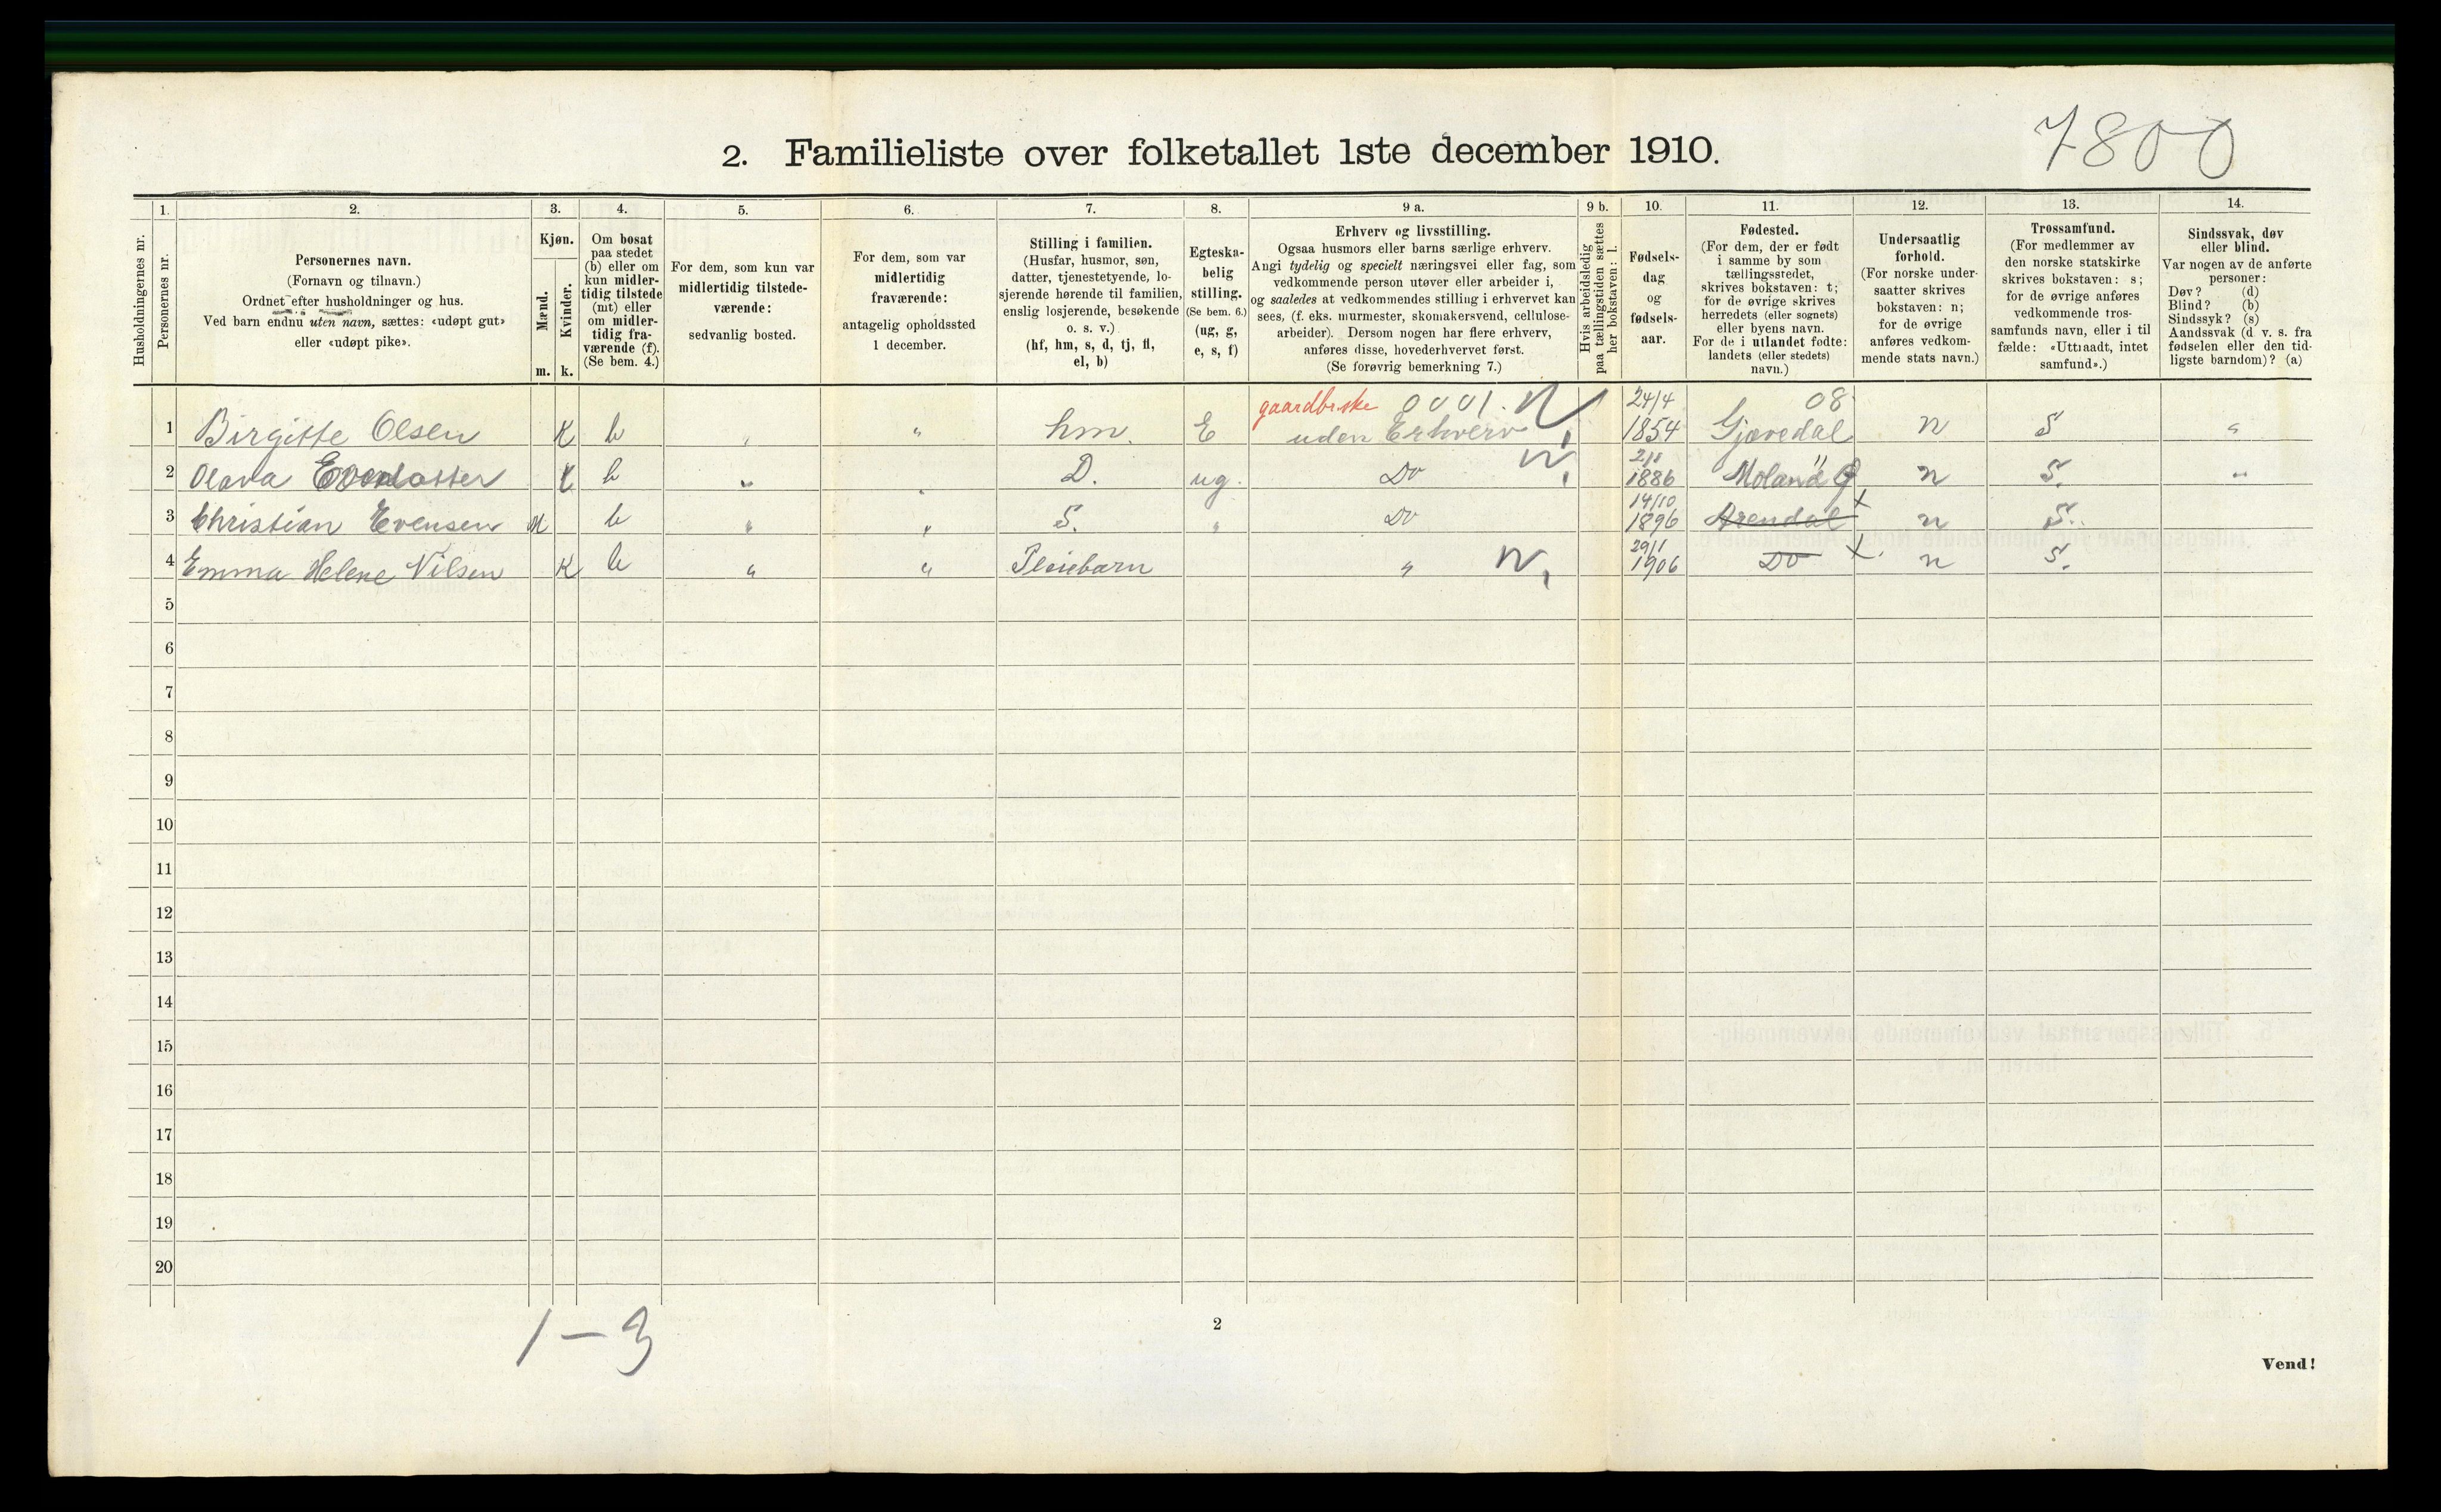 2. Familieliste over folketallet 1ste december 1910.
7800
Husholdningernes nr.
1.
Personernes nr.
2.
Personernes navn.
(Fornavn og tilnavn.)
Ordnet efter husholdninger og hus.
Ved barn endnu uten navn, sættes: «udøpt gut»
eller «udøpt pike».
3.
Kjøn.
Mænd.
Kvinder.
m. k.
4.
Om bosat
paa stedet
(b) eller om
kun midler-
tidig tilstede
(mt) eller
om midler-
tidig fra-
værende (f).
(Se bem. 4.)
5.
For dem, som kun var
midlertidig tilstede-
værende:
sedvanlig bosted.
6.
For dem, som var
midlertidig
fraværende:
antagelig opholdssted
1 december.
7.
Stilling i familien.
(Husfar, husmor, søn,
datter, tjenestetyende, lo-
sjerende hørende til familien,
enslig losjerende, besøkende
o. s. v.)
(hf, hm, s, d, tj, fl,
el, b)
8.
Egteska-
belig
stilling.
(Se bem. 6.)
(ug, g,
e, s, f)
9 a.
Erhverv og livsstilling.
Ogsaa husmors eller barns særlige erhverv.
Angi tydelig og specielt næringsvei eller fag, som
vedkommende person utøver eller arbeider i,
og saaledes at vedkommendes stilling i erhvervet kan
sees, (f. eks. murmester, skomakersvend, cellulose-
arbeider). Dersom nogen har flere erhverv,
anføres disse, hovederhvervet først.
(Se forøvrig bemerkning 7.)
9 b.
Hvis arbeidsledig
paa tællingstiden sættes
her bokstaven: l.
10.
Fødsels-
dag
og
fødsels-
aar.
11.
Fødested.
(For dem, der er født
i samme by som
tællingsstedet,
skrives bokstaven: t;
for de øvrige skrives
herredets (eller sognets)
eller byens navn.
For de i utlandet fødte:
landets (eller stedets)
navn.)
12.
Undersaatlig
forhold.
(For norske under-
saatter skrives
bokstaven: n;
for de øvrige
anføres vedkom-
mende stats navn.)
13.
Trossamfund.
(For medlemmer av
den norske statskirke
skrives bokstaven: s;
for de øvrige anføres
vedkommende tros-
samfunds navn, eller i til
fælde: «Uttraadt, intet
samfund».)
14.
Sindssvak, døv
eller blind.
Var nogen av de anførte
personer:
Døv? (d)
Blind? (b)
Sindssyk? (s)
Aandssvak (d. v. s. fra
fødselen eller den tid-
ligste barndom)? (a)
gaardbrske 0001. N 24/4 08
1 Birgitte Olsen K b " " hm. E uden Erhverv 1854 Gjøvedal n S "
2 Olava K b " " D. ug. Do 1886 Moland n S. "
3 Christian Evensen M b " " S. " Do 14/10 1896 Arendal x n S.
4 Emma Helene Nilsen K b " " Pleiebarn " N 29/1 1906 Do x n S.
5
6
7
8
9
10
11
12
13
14
15
16
17
18
19
20
1–3
2
Vend!